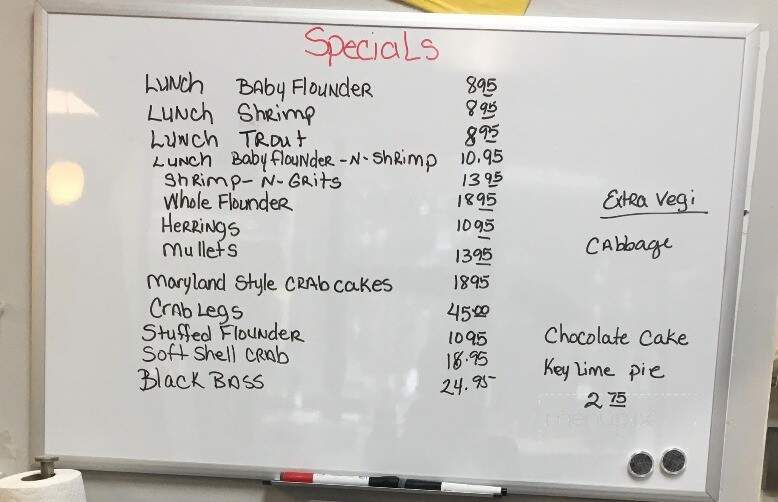 Specials
Lunch Baby Flounder 8 95
Lunch Shrimp 8 95
Lunch Trout 8 95
Lunch Baby flounder-N-Shrimp 10.95
Shrimp-N-Grits 13 95
Whole Flounder 18 95
Herrings 10 95
Mullets 13 95
Maryland Style Crab cakes 18 95
Crab Legs 45 00
Stuffed Flounder 10 95
Soft Shell Crab 18.95
Black Bass 24.95
Extra Vegi
Cabbage
Chocolate Cake
Key Lime pie
2 75